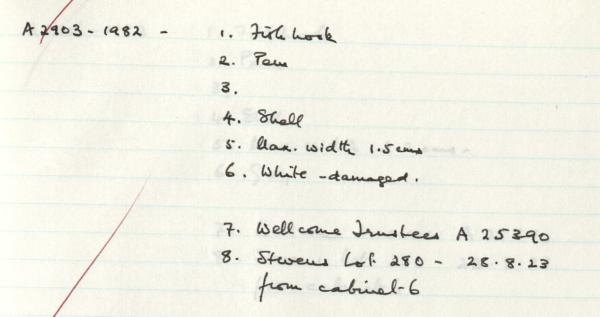 A 2903-1982 - 1. Fish hook
2. Peru
3.
4. Shell
5. Max. width 1.5 cms
6. White - damaged.
7. Wellcome Trustees A 25390
8. Stevens Lot 280 - 28.8.23
from cabinet 6